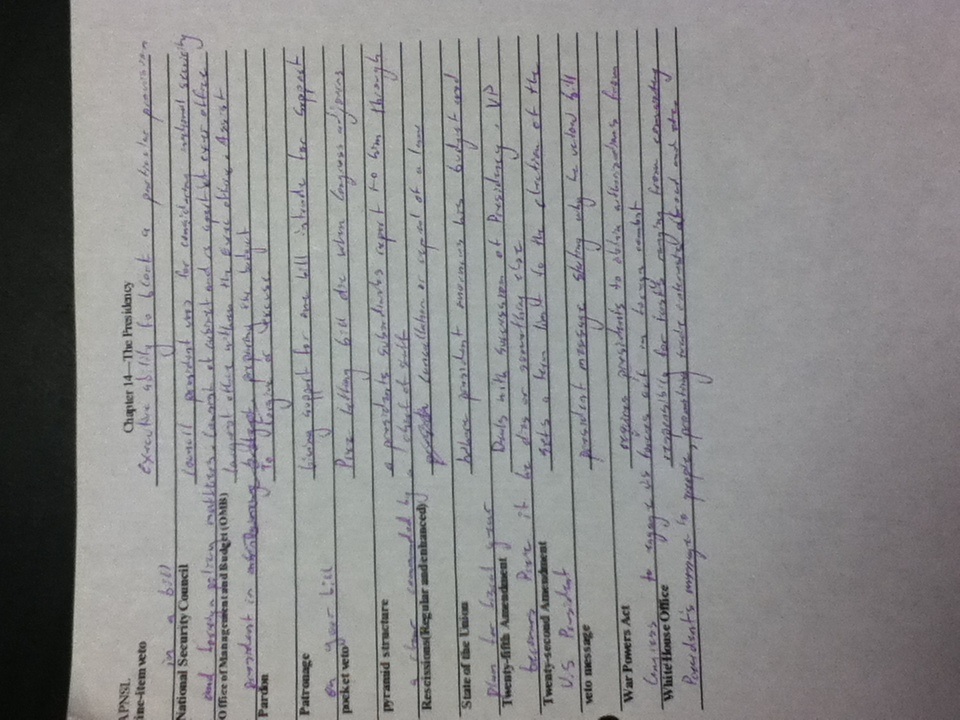 APNSL
Chapter 14—The Presidency
ine-item veto Executive ability to block a particular provision
in a bill
National Security Council Council president uses for considering national security
and foreign policy matters. Consist of cabinet and is apart of exec office
Office of Management and Budget (OMB) largest office within the Exec office. Assist
president in preparing the budget
Pardon To forgive or excuse
Patronage Giving support for one bill for support
on your bill
pocket veto Prez letting bill die when Congress adjourns
pyramid structure a presidents subordinates report to him through
a commanded by a chief of staff
Rescissions (Regular and enhanced) cancellation or repeal of a law
State of the Union Where president his budget and
plan for fiscal year
Twenty-fifth Amendment Deals with succession of Presidency. VP
becomes Prez if he dies or something else
Twenty-second Amendment Sets a term limit to the election of the
U.S President
veto message president message stating why he vetoed bill
War Powers Act requires presidents to obtain authorizations from
Congress to engage US forces in foreign combat
White House Office responsibily for tasks ranging from
President's message to people, promoting trade abroad and etc.